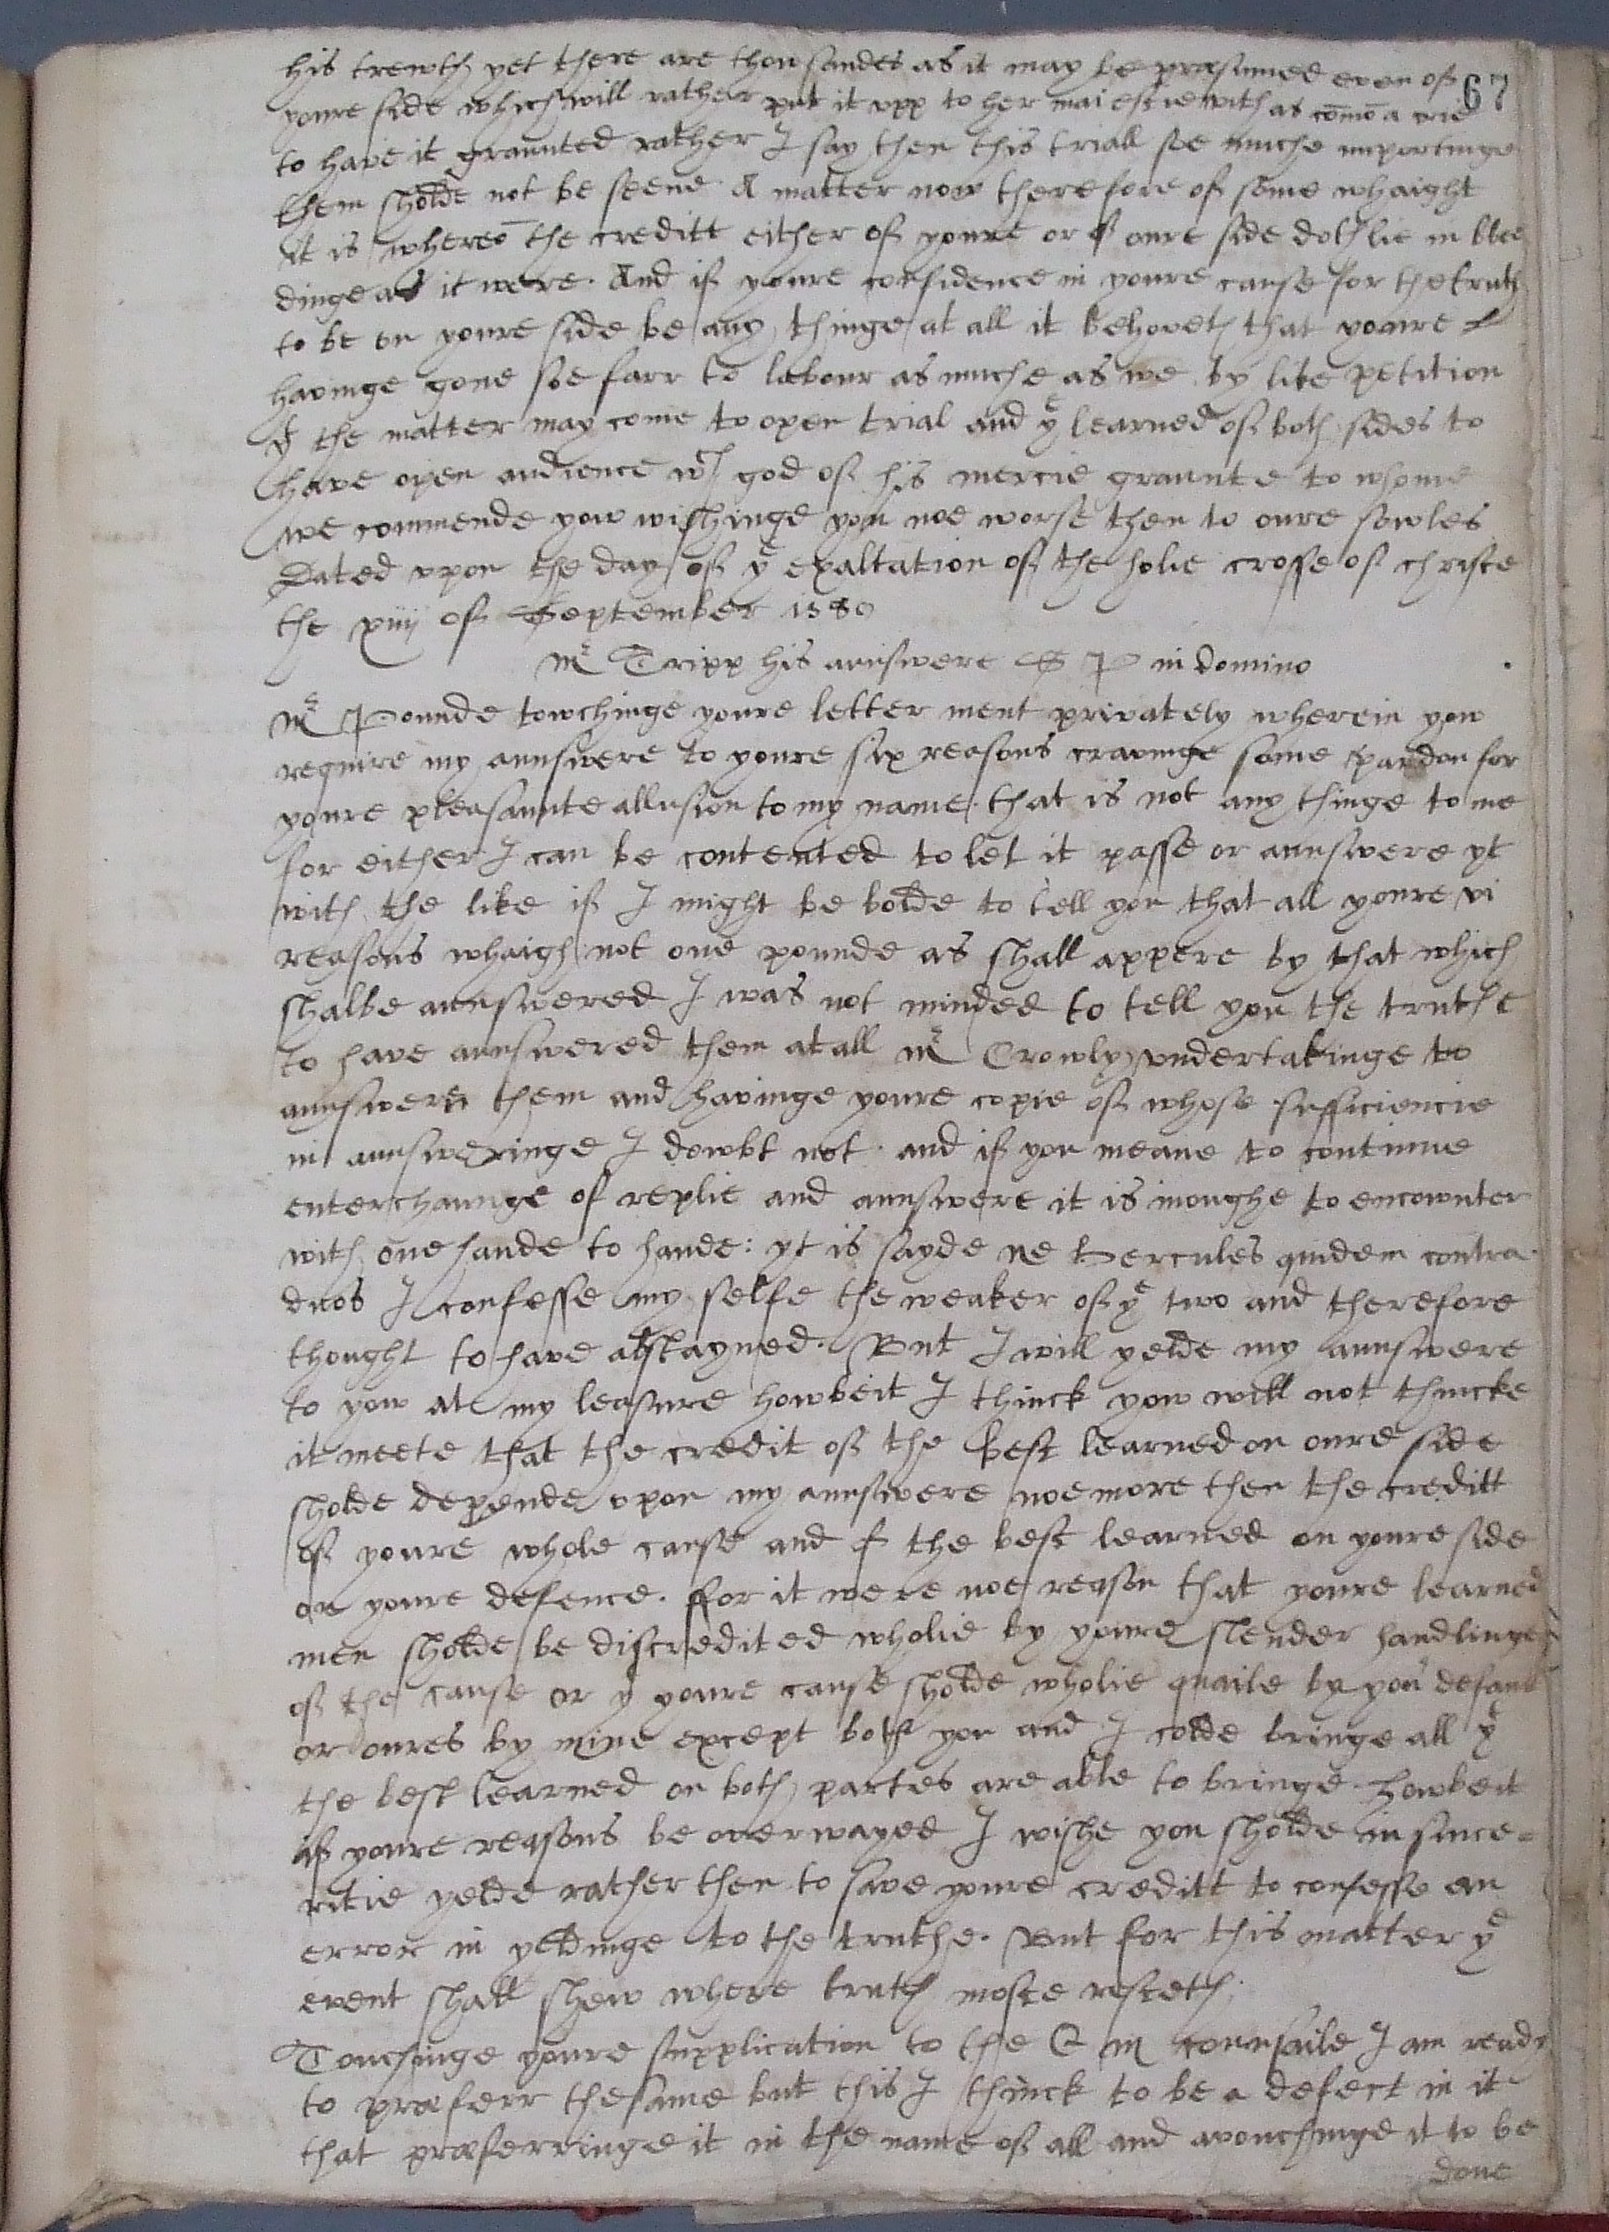 his trewth yet there are thousandes as it may be præsumed even of 67
youre side which will rather put it upp to her maiestie with as cōmō a crie
to have it graunted rather I say then this triall soe muche importinge
them sholde not be seene A matter now therefore of some whaight
it is whereō the creditt either of youre or of oure side doth lie in blee
dinge as it were. And if youre confidence in youre cause for the truth
to be on youre side be any thinge at all it behoveth that youre
havinge gone soe farr to labour as muche as we by like petition
yt the matter may come to open trial and ye learned of both sides to
have open audience wch god of his mercie graunte to whome
we commende yow wishinge you noe worse then to oure sowles
Dated upon the day of ye exaltation of the holie crosse of christe
the xiiij of September 1580
Mr Tripp his aunswere S P in domino
Mr Pounde towchinge youre letter ment privately wherein yow
require my aunswere to youre six reasons cravinge some pardon for
youre pleasaunte allusion to my name that is not any thinge to me
for either I can be contented to let it passe or aunswere yt
with the like if I might be bolde to tell you that all youre vi
reasons whaigh not one pounde as shall appere by that which
shalbe aunswered I was not minded to tell you the truthe
to have aunswered them at all Mr Crowly undertakinge to
aunswere them and havinge youre copie of whose sufficiencie
in aunsweringe I dowbt not. and if you meane to continue
enterchaunge of replie and aunswere it is inoughe to encownter
with one hande to hande: yt is sayde ne Hercules quidem contra
duos I confesse my selfe the weaker of ye two and therefore
thought to have abstayned. But I will yelde my aunswere
to yow at my leasure howbeit I thinck yow will not thincke
it meete that the credit of the best learned on oure side
sholde depende upon my aunswere noe more then the creditt
of youre whole cause and of the best learned on youre side
on youre defence. ffor it were noe reason that youre learned
men sholde be discredited wholie by youre slender handlinge
of the cause or yt youre cause sholde wholie quaile by your defaut
or oures by mine except both you and I colde bringe all yt
the best learned on both partes are able to bringe. howbeit
if youre reasons be overwayed I wishe you sholde in since=
ritie yelde rather then to save youre creditt to confesse an
error in yeldinge to the truthe. But for this matter ye
event shall shew where truth moste resteth.
Touchinge youre supplication to the Q M counsaile I am ready
to præferr the same but this I thinck to be a defect in it
that præferringe it in the name of all and avouchinge it to be
done